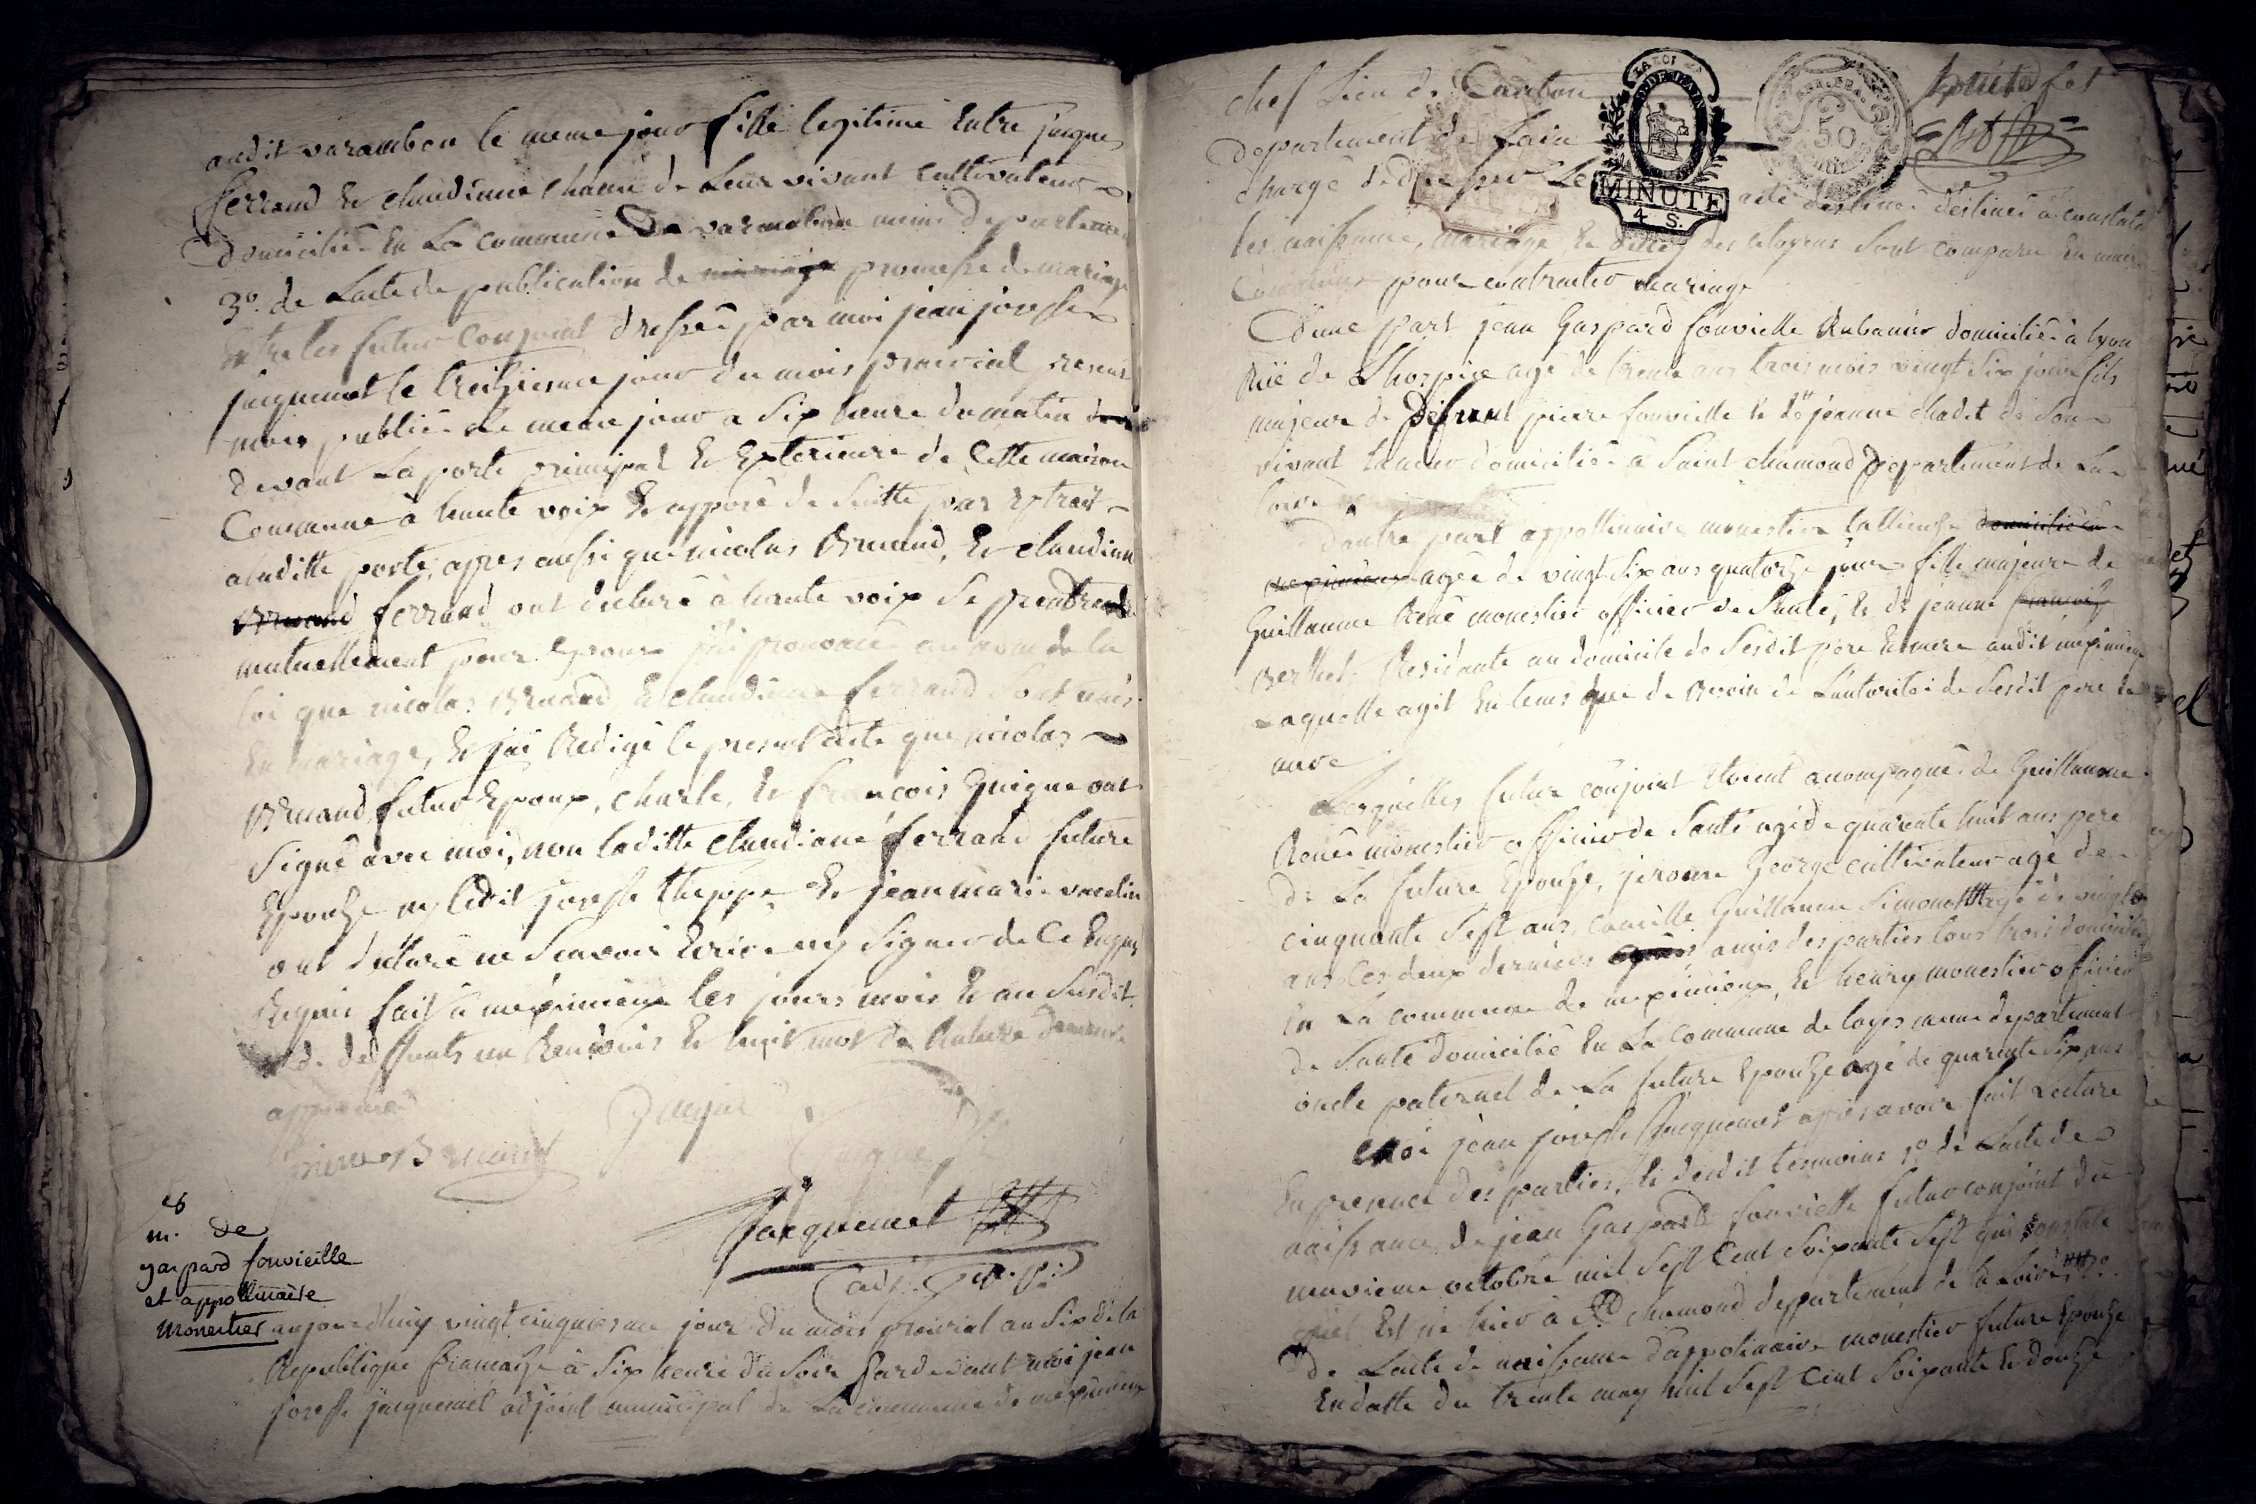 audit varambon le meme jour fille legitime Entre jacques
ferrand Et claudinne chanu de Leur vivant cultivateurs
domiciliés En La commune De varambon meme departement
3º. de Lacte de publication de mariage promesse de mariage
Entre les futur conjoint dressée par moi jean joseph
jacquemet le treizieme jour du mois prairial present
mois publiée le meme jour a six heure du matin
devant La porte principal Et Exterieure de Cette maison
Commune à haute voix Et apposé de suitte par Extrait
a laditte porte, apres aussi que nicolas Bruand, Et claudinne
Bruand ferrand ont declaré à haute voix se prendre
mutuellement pour Epoux j'ai prononcé au nom de la
loi que nicolas Bruand Et claudinne ferrand sont unis
En mariage, Et j'ai Redigé le present acte que nicolas
Bruand futur Epoux, charle, Et françois Guigue ont
signé avec moi, non laditte claudinne ferrand future
Epouse ny ledit joseph Et jean marie
ont declaré ne scavoir Ecrire ny signer de Ce Enquis
Requis fait à meximieux les jours mois Et an susdit
de deffunts un Renvois Et huit mot de Rature
approuvé
Bruand Guigue
Guigue
Jacquemet
adj.
m. de
gaspard fouvieille
et appollinaire
Monestier
aujourdhuy vingt cinquieme jour du mois prairial an six de la
Republique française à six heure du soir pardevant moi jean
joseph jacquemet adjoint municipal de La commune de meximieux
chef Lieu de Canton
departement de Lain
chargé de dresser Le
LA LOI
MINUTE
4. S.
50
acte destinés à constater
les naissance, mariage, Et décès des citoyens sont comparu En maison
Commune pour contracter mariage
D'une part jean Gaspard fouvielle Rubanier domicilié à lyon
Rüe de Lhospice agé de trente ans trois mois vingt six jours fils
majeur de Défunt pierre fouvielle Et de jeanne chadet de Son
vivant domicilié à Saint chamond Departement de La
Loire
D'autre part appollinaire monestier domiciliée
meximieux agée de vingt six ans quatorze jours fille majeure de
Guillaume René monestier officier de Santé, Et de jeanne françois
Berthet Residante au domicile de sesdit pere Et mere audit meximieux
Laquelle agit En tems que de Besoin de L'autorité de sesdit pere Et
mere
Lesquelles futur conjoint Etoient accompagnés de Guillaume
René monestier officier de Santé agé de quarante huit ans pere
de La future Epouse, jerome George cultivateur agé de
cinquante sept ans, camille Guillaume Simonet agé de vingt
ans Les deux derniers amis des parties tous trois domiciliés
En La commune de meximieux, Et henry monestier officier
de Santé domicilié En La commune de loyes meme departement
oncle paternel de La future Epouse agé de quarante six ans
Moi jean joseph Jacquemet apres avoir fait Lecture
En presence des parties, Et desdit temoins 1º de Lacte de
naissance de jean Gaspard fouvielle futur conjoint du
neuvieme octobre mil sept Cent Soixante Sept qui constate
quil Est né hier à St chamond departement de la Loire 2º.
de Lacte de naissance d'appolinaire monestier future Epouse
En datte du trente may mil sept Cent Soixante Et douze